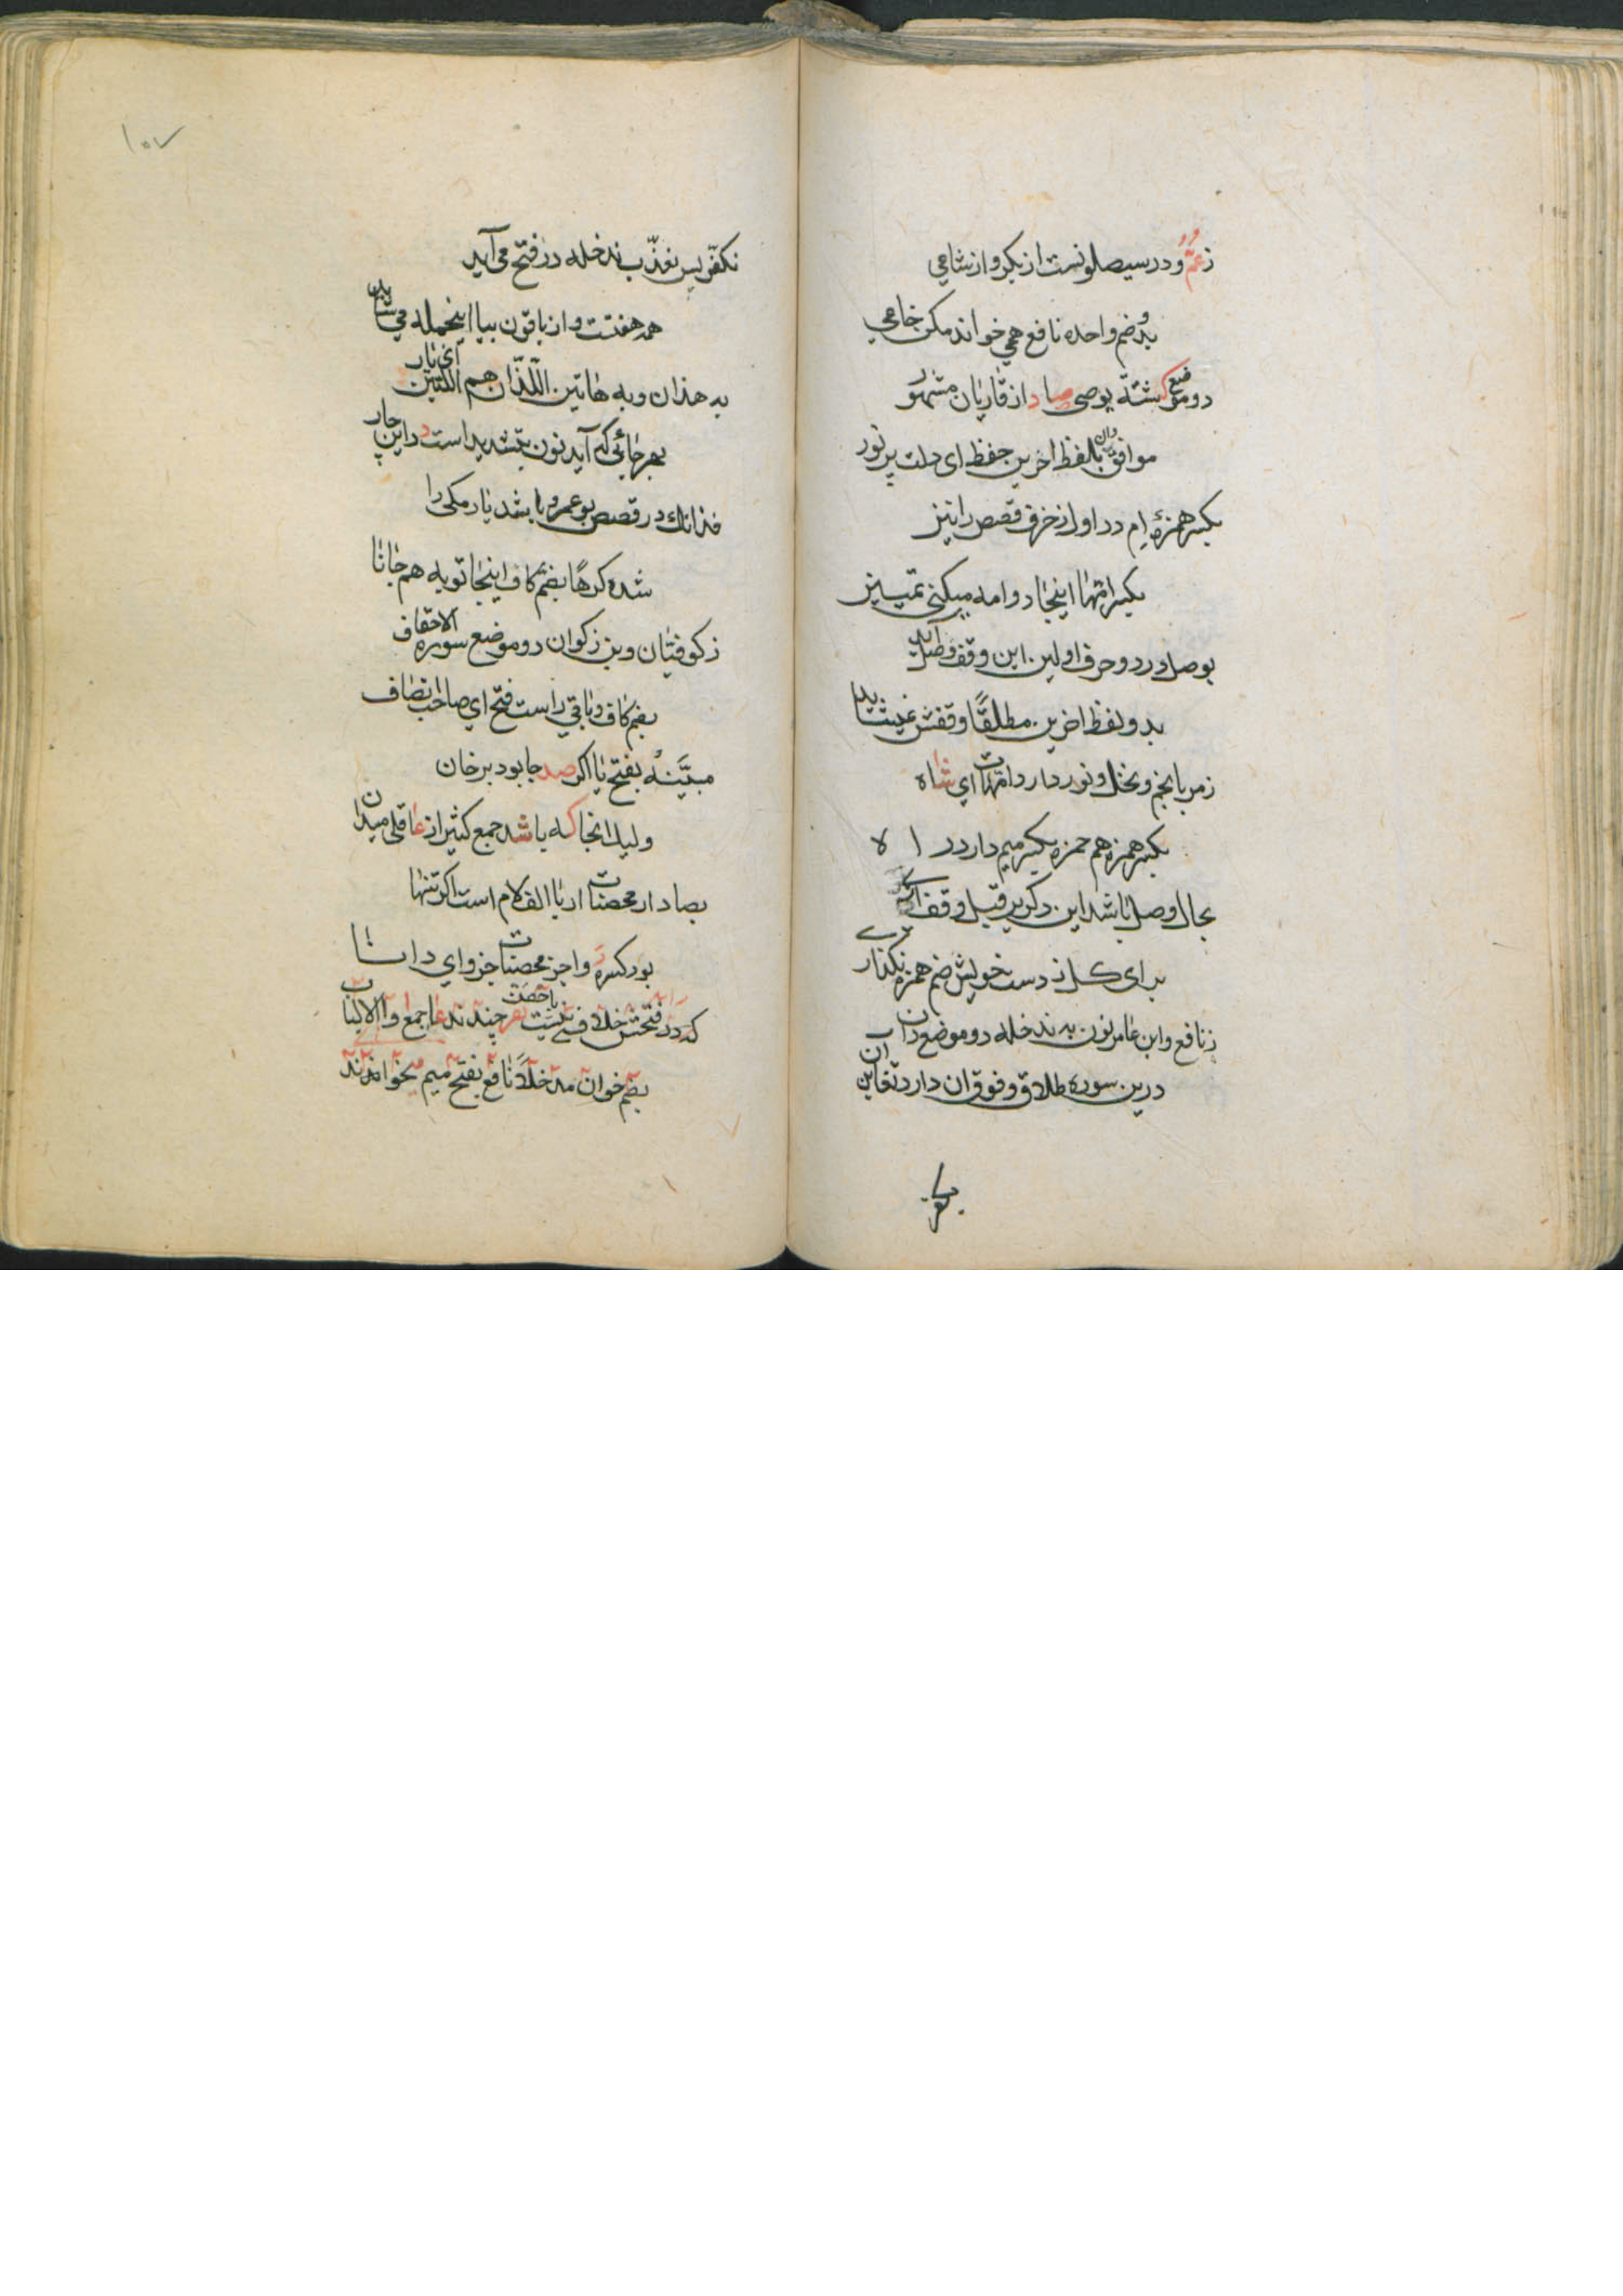 ز عمّ و در سیصلونست از بکر و از شامی
بدو ضم واحده نافع همی خواند مکن خامی
دو موضع کشته یوصی صاد از قاریان مشهور
موافق دان بلفظ اخرین حفظ ای دلت پر نور
بکسر همزهٔ ام در اول زخرف قصص را نیز
بکسر امّها اینجا دو امه میکنی تمییز
بوصل در دو حرف اولین این وقف وصل آید
بدو لفظ اخرین مطلقًا وقفش
زمر با نجم و نحل و نور دارد امّهات ای شاه
بکسر همزه هم حمزه بکسر میم دارد را ه
بحال وصل باشد این دکر بر قبل وقف
برای کل ز دست خویش ضم همزه نکذاری
ز نافع وابن عامر نون به ندخله دو موضع دان
درین سوره طلاق و فوق ان دارد تغابن ان
نکفر
۱۰۷
نکفّر پس نعذّب ندخله در فتح می آید
همه هفتست و از باقون بیا اینجمله می شاید
به هذان و به هاتین اللّذان هم اللّتین ای یار
بهر جائی که آید نون بتشدید است د این چار
فذانك در قصص بو عمرو باشد یار مکی را
شده کرهًا بضم کاف اینجا توبه هم جانا
ز کوفیّان وبن ذکوان دو موضع سوره الاحقاف
بضم کاف و باقی راست فتح ای صاحب انصاف
مبیّنة بفتح یا اکر صد جا بود بر خان
ولیك انجا که باشد جمع کثیر از عاقلی میدان
بصاد ار محصنات ار با الف لام است اکر تنها
بود کسره ر و اجز محصنات جز و ای دانا
که در فتحش خلافی نیست با احصن نفر چندند عا جمع و الالباب
بضم خوان مدخلًا نافع بفتح میم میخوانند